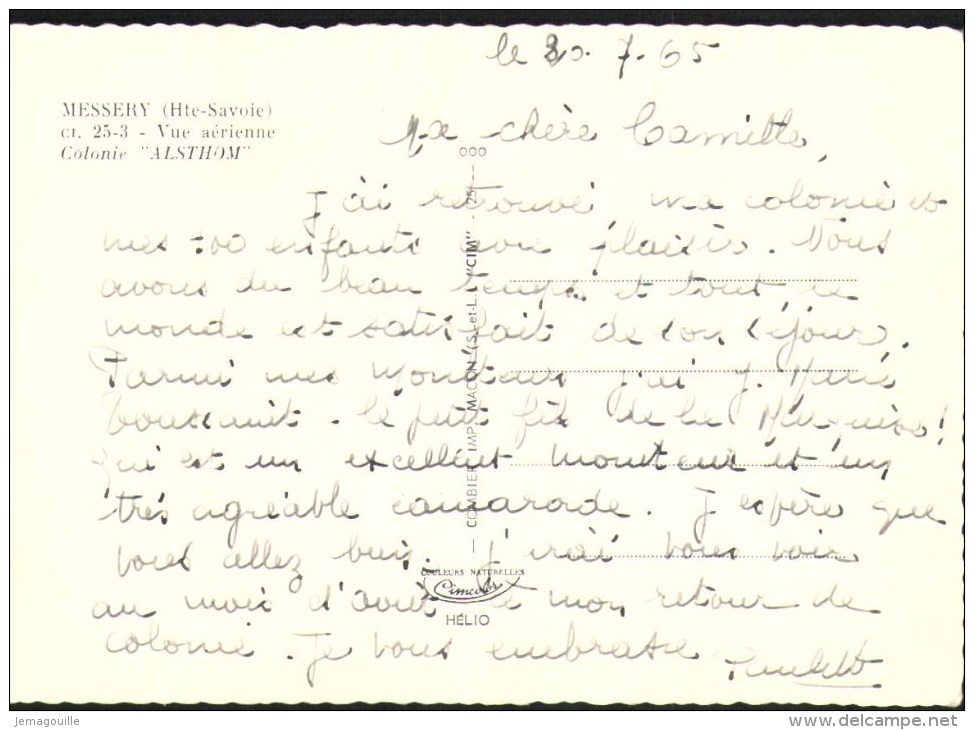 le 30. 7. 65
MESSERY (Hte-Savoie)
CT. 25-3 - Vue aérienne
Colonie "ALSTHOM"
Ma chère Camille,
J'ai retrouvé ma colonie et
mes 200 enfants avec plaisir. Nous
avons du beau temps et tout le
monde est satisfait de son séjour.
Parmi mes moniteurs j'ai J. Marie
Toussaint - le petit fils de la Marquise!
qui est un excellent moniteur et un
très agréable camarade. J'espère que
vous allez bien. J'irai vous voir
au mois d'août à mon retour de
colonie. Je vous embrasse
Paulette
COMBIER IMP. MACON (S.-et-L.) "CIM" - 25
OOO
COULEURS NATURELLES
Cimcolor
HÉLIO
Jemagouille
www.delcampe.net